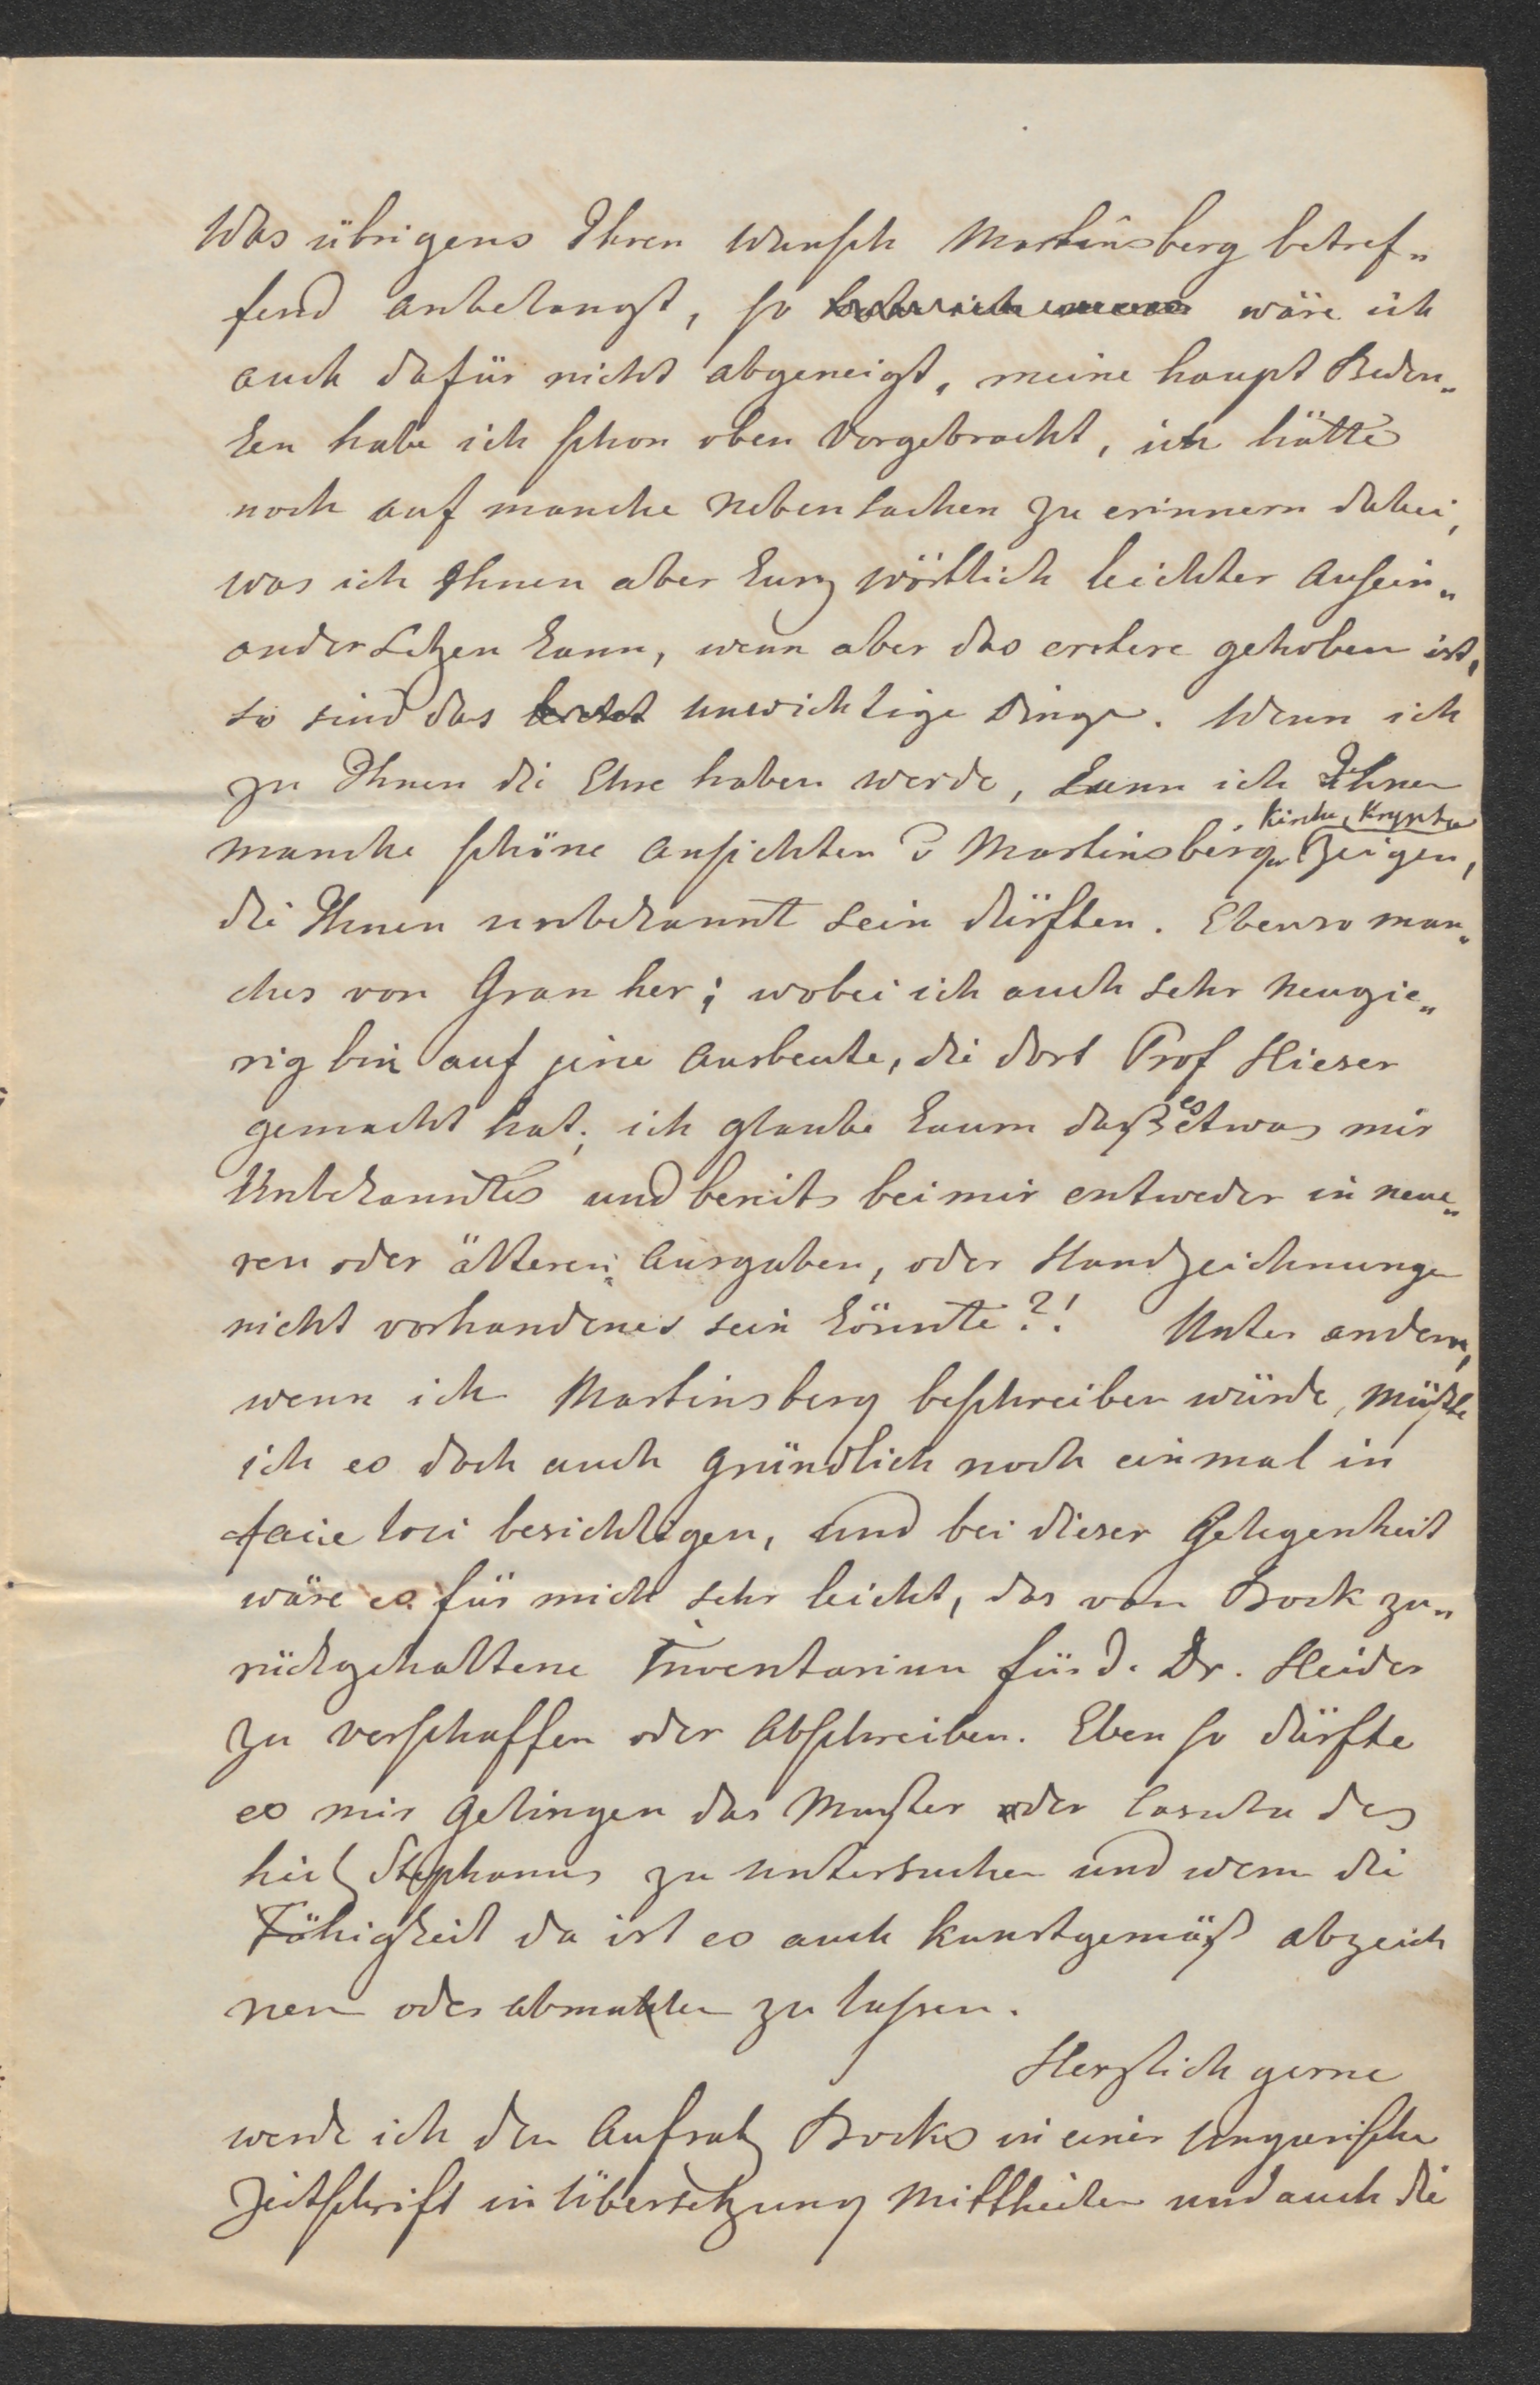 Was übrigens Ihren Wunsch Martinsberg betref„
fend anbelangt, so wäre ich
auch dafür nicht abgeneigt, meine haupt Beden„
ken habe ich schon oben vorgebracht, ich hätte
noch auf manche Nebensachen zu erinnern dabei,
was ich Ihnen aber kurz wörtlich leichter ausein„
andersetzen kann, wenn aber das erstere gehoben ist,
so sind das unwichtige Dinge. Wenn ich
zu Ihnen die Ehre haben werde, kann ich Ihnen
manche schöne Ansichten v Martinsberg, Kirche, Krypta zeigen,
die Ihnen unbekannt sein dürften. Ebenso man„
ches von Gran her; wobei ich auch sehr neugie„
rig bin auf jene Ausbeute, die dort Prof Hieser
gemacht hat; ich glaube kaum daß es etwas mir
Unbekanntes und bereits bei mir entweder in neue„
ren oder älteren Ausgaben, oder Handzeichnunge
nicht vorhandenes sein könnte?! Unter andern,
wenn ich Martinsberg beschreiben würde, müßte
ich es doch auch gründlich noch einmal in
facie loci besichtigen, und bei dieser Gelegenheit
wäre es für mich sehr leicht, das von Bock zu„
rückgehaltene Inventarium für d. Dr. Heider
zu verschaffen oder abschreiben. Eben so dürfte
es mir gelingen das Muster oder Casula des
heil Stephanus zu untersuchen und wenn die
Fähigkeit da ist es auch kunstgemäß abzeich
nen oder abmahlen zu lassen.
Herzlich gerne
werde ich den Aufsatz Bocks in einer ungarischen
Zeitschrift in Übersetzung mittheilen und auch die